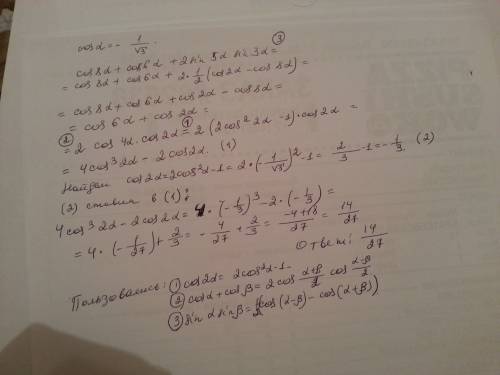 cosα = - 1/√3.
cos8α + cos6α + 2 sin 5α sin 3α = ③
= cos8α + cos6α + 2·1/2 (cos2α - cos8α) =
= cos8α + cos6α + cos2α - cos8α =
= cos6α + cos2α =
② = 2 cos 4α · cos2α ① = 2(2cos² 2α - 1)·cos2α =
= 4cos³2α - 2cos2α. (1)
Найдём cos2α = 2cos²α - 1 = 2·(-1/√3)² - 1 = 2/3 - 1 = -1/3. (2)
(2) ставим в (1):
4cos³2α - 2cos2α = 4·(-1/3)³ - 2·(-1/3) =
= 4·(-1/27) + 2/3 = -4/27 + 2/3 = -4+18/27 = 14/27
Ответ: 14/27
Пользовались: ① cos2α = 2cos²α - 1 -
② cosα + cosβ = 2cos α+β/2 cos α-β/2
③ sin α sin β = 1/2 (cos(α-β) - cos(α+β))